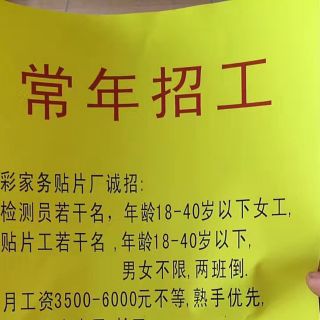 常年招工
彩家务贴片厂诚招:
检测员若干名，年龄18-40岁以下女工,
贴片工若干名,年龄18-40岁以下,
男女不限,两班倒.
月工资3500-6000元不等,熟手优先,